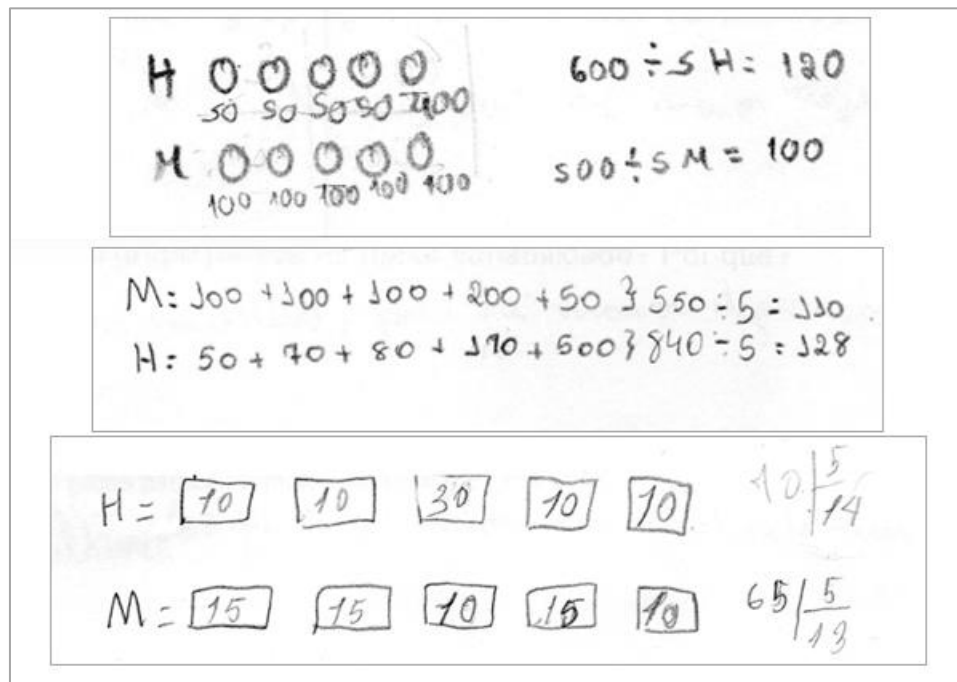 H O O O O O 600 ÷ 5 H = 120
50 50 50 50 400
M O O O O O 500 ÷ 5 M = 100
100 100 100 100 100
M: 100 + 100 + 100 + 200 + 50 } 550 ÷ 5 = 110
H: 50 + 70 + 80 + + 500 } 840 ÷ 5 = 128
H = 10 10 30 10 10 70 | 5
14
M = 15 15 10 15 10 65 | 5
13